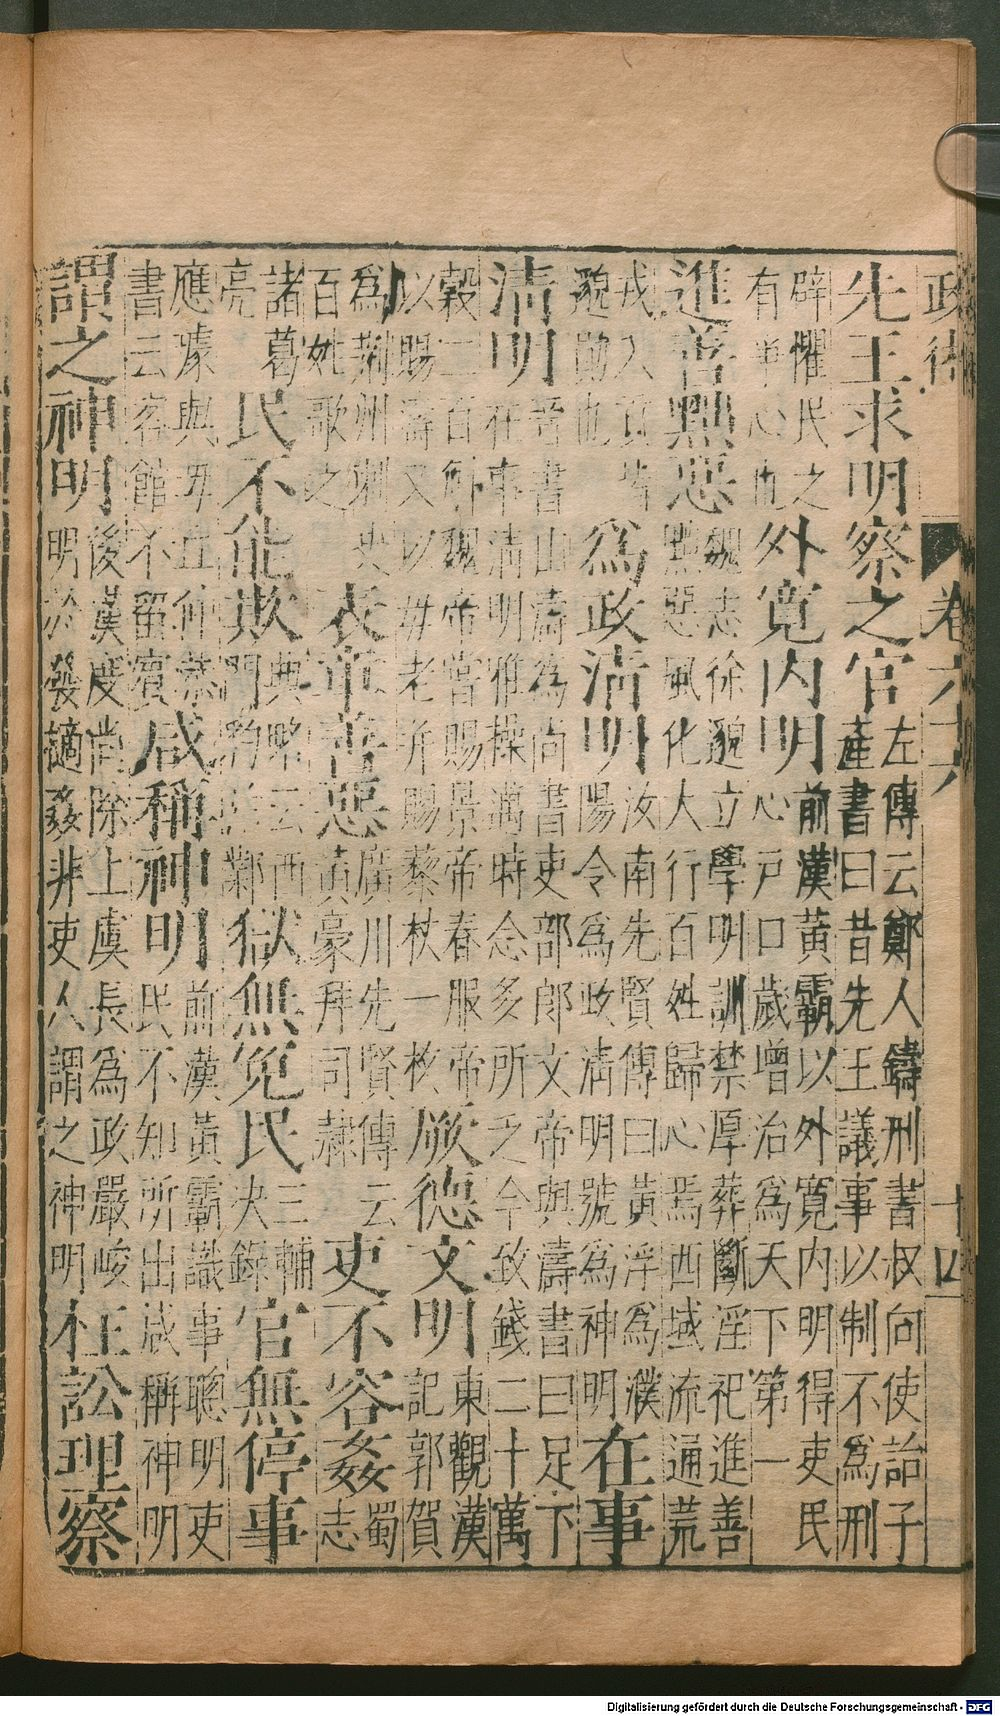 政術 卷六十六 十四
先王求明察之官 左傳云鄭人鑄刑書叔向使詒子
產書曰昔先王議事以制不為刑
辟懼民之
有爭心也 外寬內明 前漢黃霸以外寬內明得吏民
心戶口歲增治為天下第一
進善黜惡 魏志徐邈立學明訓禁厚葬斷淫祀進善
黜惡風化大行百姓歸心焉西域流通荒
戎入貢皆
邈勛也 為政清明 汝南先賢傳曰黃浮為濮
陽令為政清明號為神明 在事
清明 晉書山濤為尚書吏部郎文帝與濤書曰足下
在事清明雅操邁時念多所乏今致錢二十萬
穀二百斛魏帝嘗賜景帝春服帝
以賜濤又以母老并賜藜杖一枚 厥德文明 東觀漢
記郭賀
為荊州刺史
百姓歌之 表章善惡 廣川先賢傳云
黃豪拜司隸 吏不容姦 蜀
志
諸葛
亮 民不能欺 典略云西
門豹治鄴 獄無冤民 三輔
決錄 官無停事
應璩與毋丘仲恭
書云客館不留賓 咸稱神明 前漢黃霸識事聰明吏
民不知所出咸稱神明
謂之神明 後漢度尚除上虞長為政嚴峻
明於發擿姦非吏人謂之神明 枉訟理察
Digitalisierung gefördert durch die Deutsche Forschungsgemeinschaft - DFG